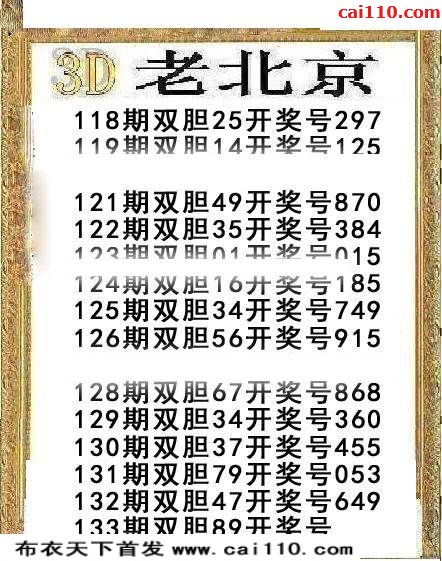 cai110.com
3D 老北京
118期双胆25开奖号297
119期双胆14开奖号125
121期双胆49开奖号870
122期双胆35开奖号384
123期双胆01开奖号015
124期双胆16开奖号185
125期双胆34开奖号749
126期双胆56开奖号915
128期双胆67开奖号868
129期双胆34开奖号360
130期双胆37开奖号455
131期双胆79开奖号053
132期双胆47开奖号649
133期双胆89开奖号
布衣天下首发 www.cai110.com